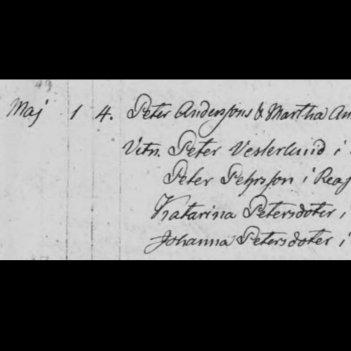 Maj 1 4. Peter Anderssons & Martha An
Vitn. Peter Vesterlund i
Peter Pehrsson i Rea
Katarina Petersdoter i
Johanna Petersdoter i